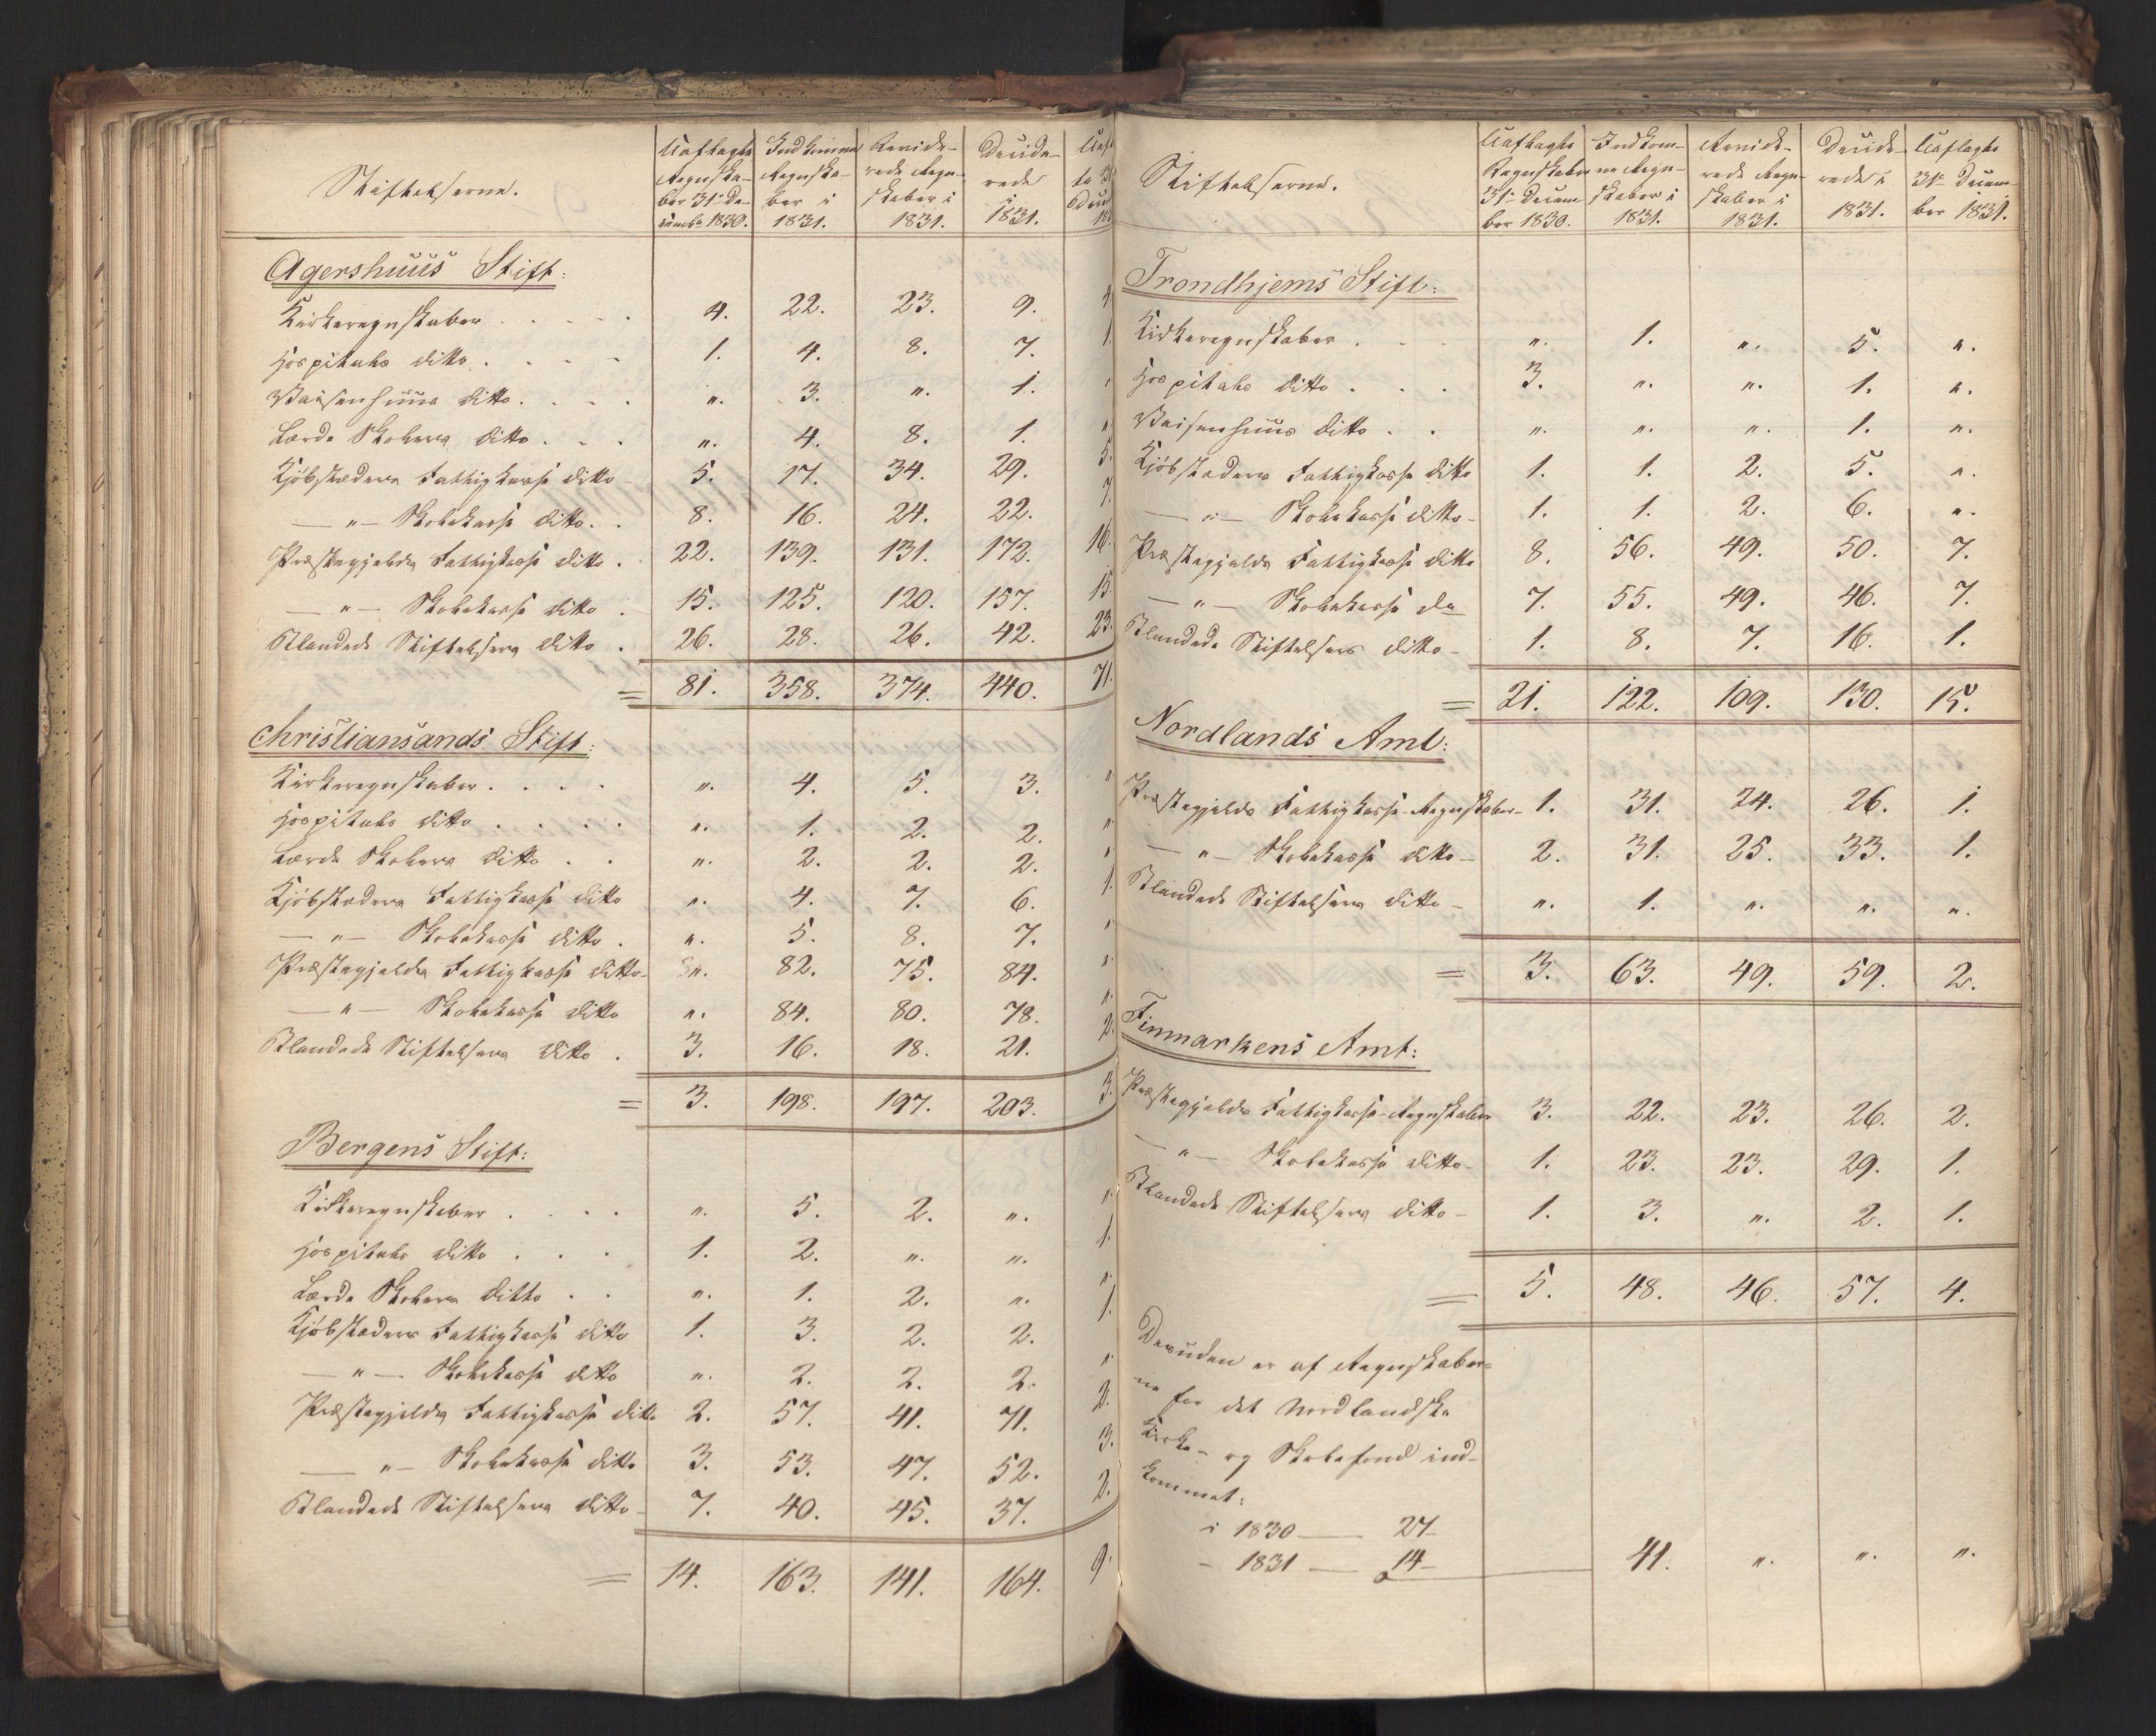 Stiftelserne. | Uaflagte Regnskaber 31te December 1830. | Indkomne Regnskaber i 1831. | Reviderede Regnskaber i 1831. | Deciderede i 1831. | Uafl
Agershuus Stift:
Kirkeregnskaber . . . . 4. 22. 23. 9. 4
Hospitals ditto . . . . 1. 4. 8. 7. 1.
Waisenhuus ditto . . . . „. 3. „. 1. „
Lærde Skolers ditto . . . „. 4. 8. 1. „
Kjøbstæders Fattigkasse ditto – 5. 17. 34. 29. 5.
— „ — Skolekasse ditto . . 8. 16. 24. 22. 7.
Præstegjelds Fattigkasse ditto . 22. 139. 131. 172. 16.
— „ — Skolekasse ditto . 15. 125. 120. 157. 15.
Blandede Stiftelsers ditto . 26. 28. 26. 42. 23.
= 81. 358. 374. 440. 71.
Christiansands Stift:
Kirkeregnskaber . . . . „. 4. 5. 3. „
Hospitals ditto . . . . „. 1. 2. 2. „
Lærde Skolers ditto . . „. 2. 2. 2. „
Kjøbstæders Fattigkasse ditto „. 4. 7. 6. 1.
— „ — Skolekasse ditto . „. 5. 8. 7. „
Præstegjelds Fattigkasse ditto – „. 82. 75. 84. „
— „ — Skolekasse ditto „. 84. 80. 78. „
Blandede Stiftelsers ditto . 3. 16. 18. 21. 2.
= 3. 198. 197. 203. 3.
Bergens Stift:
Kirkeregnskaber . . . . „. 5. 2. „. „
Hospitals ditto . . . 1. 2. „. „. 1.
Lærde Skolers ditto . . „. 1. 2. „. „
Kjøbstæders Fattigkasse ditto 1. 3. 2. 2. 1.
— „ — Skolekasse ditto „. 2. 2. 2. „
Præstegjelds Fattigkasse ditto 2. 57. 41. 71. 2.
— „ — Skolekasse ditto 3. 53. 47. 52. 3.
Blandede Stiftelsers ditto – 7. 40. 45. 37. 2.
= 14. 163. 141. 164. 9.
Stiftelserne. | Uaflagte Regnskaber 31te December 1830. | Indkomne Regnskaber i 1831. | Reviderede Regnskaber i 1831. | Deciderede i 1831. | Uaflagte 31te December 1831.
Trondhjems Stift:
Kirkeregnskaber . . . „. 1. „. 5. „.
Hospitals ditto . . . 3. „. „. 1. „.
Waisenhuus ditto . . „. „. „. 1. „.
Kjøbstæders Fattigkasse ditto 1. 1. 2. 5. „.
— „ — Skolekasse ditto – 1. 1. 2. 6. „.
Præstegjelds Fattigkasse ditto 8. 56. 49. 50. 7.
— „ — Skolekasse do 7. 55. 49. 46. 7.
Blandede Stiftelsers ditto – 1. 8. 7. 16. 1.
= 21. 122. 109. 130. 15.
Nordlands Amt:
Præstegjelds Fattigkasse-Regnskaber – 1. 31. 24. 26. 1.
— „ — Skolekasse ditto – 2. 31. 25. 33. 1.
Blandede Stiftelsers ditto – „. 1. „. „. „.
= 3. 63. 49. 59. 2.
Finmarkens Amt:
Præstegjelds Fattigkasse-Regnskaber 3. 22. 23. 26. 2.
— „ — Skolekasse ditto – 1. 23. 23. 29. 1.
Blandede Stiftelsers ditto – 1. 3. „. 2. 1.
= 5. 48. 46. 57. 4.
Desuden er af Regnskaber-
ne for det Nordlandske
Kirke- og Skolefond ind-
kommet:
i 1830 — 27
– 1831 — 14 — 41. „. „. „.